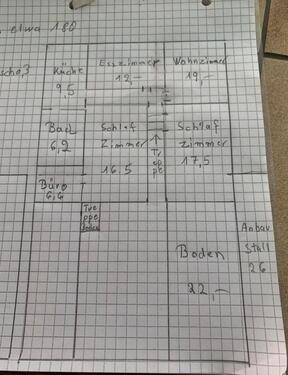 etwa 180
Küche
9,5
Esszimmer
12,–
Wohnzimmer
19,–
Bad
6,2
Schlaf
Zimmer
16.5
Treppe
Schlaf
zimmer
17,5
Büro
6,6
Tre
ppe
Boden
Boden
22,–
Anbau
Stall
26